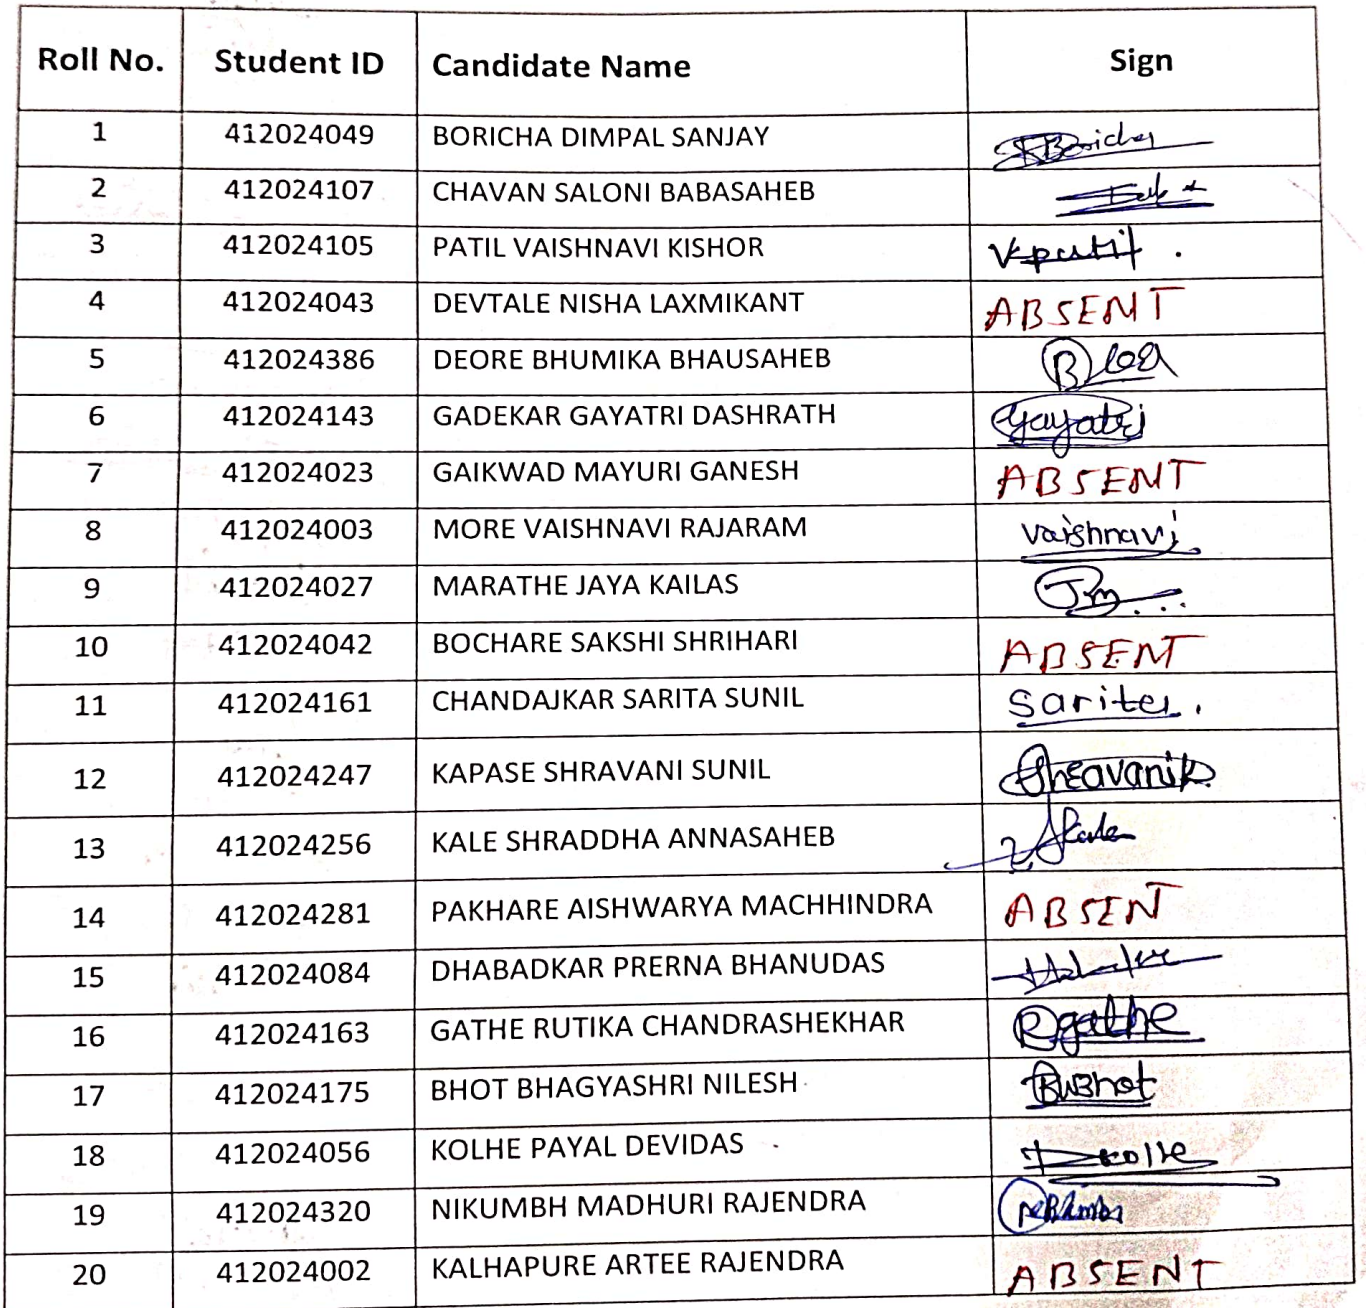 Roll No. Student ID Candidate Name Sign
1 412024049 BORICHA DIMPAL SANJAY Boricha
2 412024107 CHAVAN SALONI BABASAHEB
3 412024105 PATIL VAISHNAVI KISHOR V.patil.
4 412024043 DEVTALE NISHA LAXMIKANT ABSENT
5 412024386 DEORE BHUMIKA BHAUSAHEB
6 412024143 GADEKAR GAYATRI DASHRATH Gayatri
7 412024023 GAIKWAD MAYURI GANESH ABSENT
8 412024003 MORE VAISHNAVI RAJARAM vaishnavi
9 412024027 MARATHE JAYA KAILAS
10 412024042 BOCHARE SAKSHI SHRIHARI ABSENT
11 412024161 CHANDAJKAR SARITA SUNIL Sarita.
12 412024247 KAPASE SHRAVANI SUNIL ShravaniK
13 412024256 KALE SHRADDHA ANNASAHEB
14 412024281 PAKHARE AISHWARYA MACHHINDRA ABSENT
15 412024084 DHABADKAR PRERNA BHANUDAS
16 412024163 GATHE RUTIKA CHANDRASHEKHAR Rgathe
17 412024175 BHOT BHAGYASHRI NILESH BNBhot
18 412024056 KOLHE PAYAL DEVIDAS
19 412024320 NIKUMBH MADHURI RAJENDRA
20 412024002 KALHAPURE ARTEE RAJENDRA ABSENT